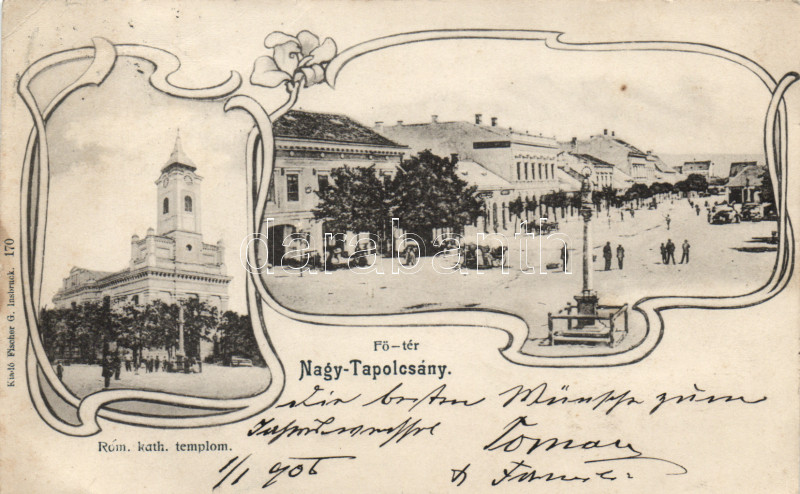 Kiadó Fischer G. Insbruck. 170
Róm. kath. templom.
Fö-tér
Nagy-Tapolcsány.
darabanth
Die besten Wünsche zum
Jahreswechsel
1/1 906
Toman
&